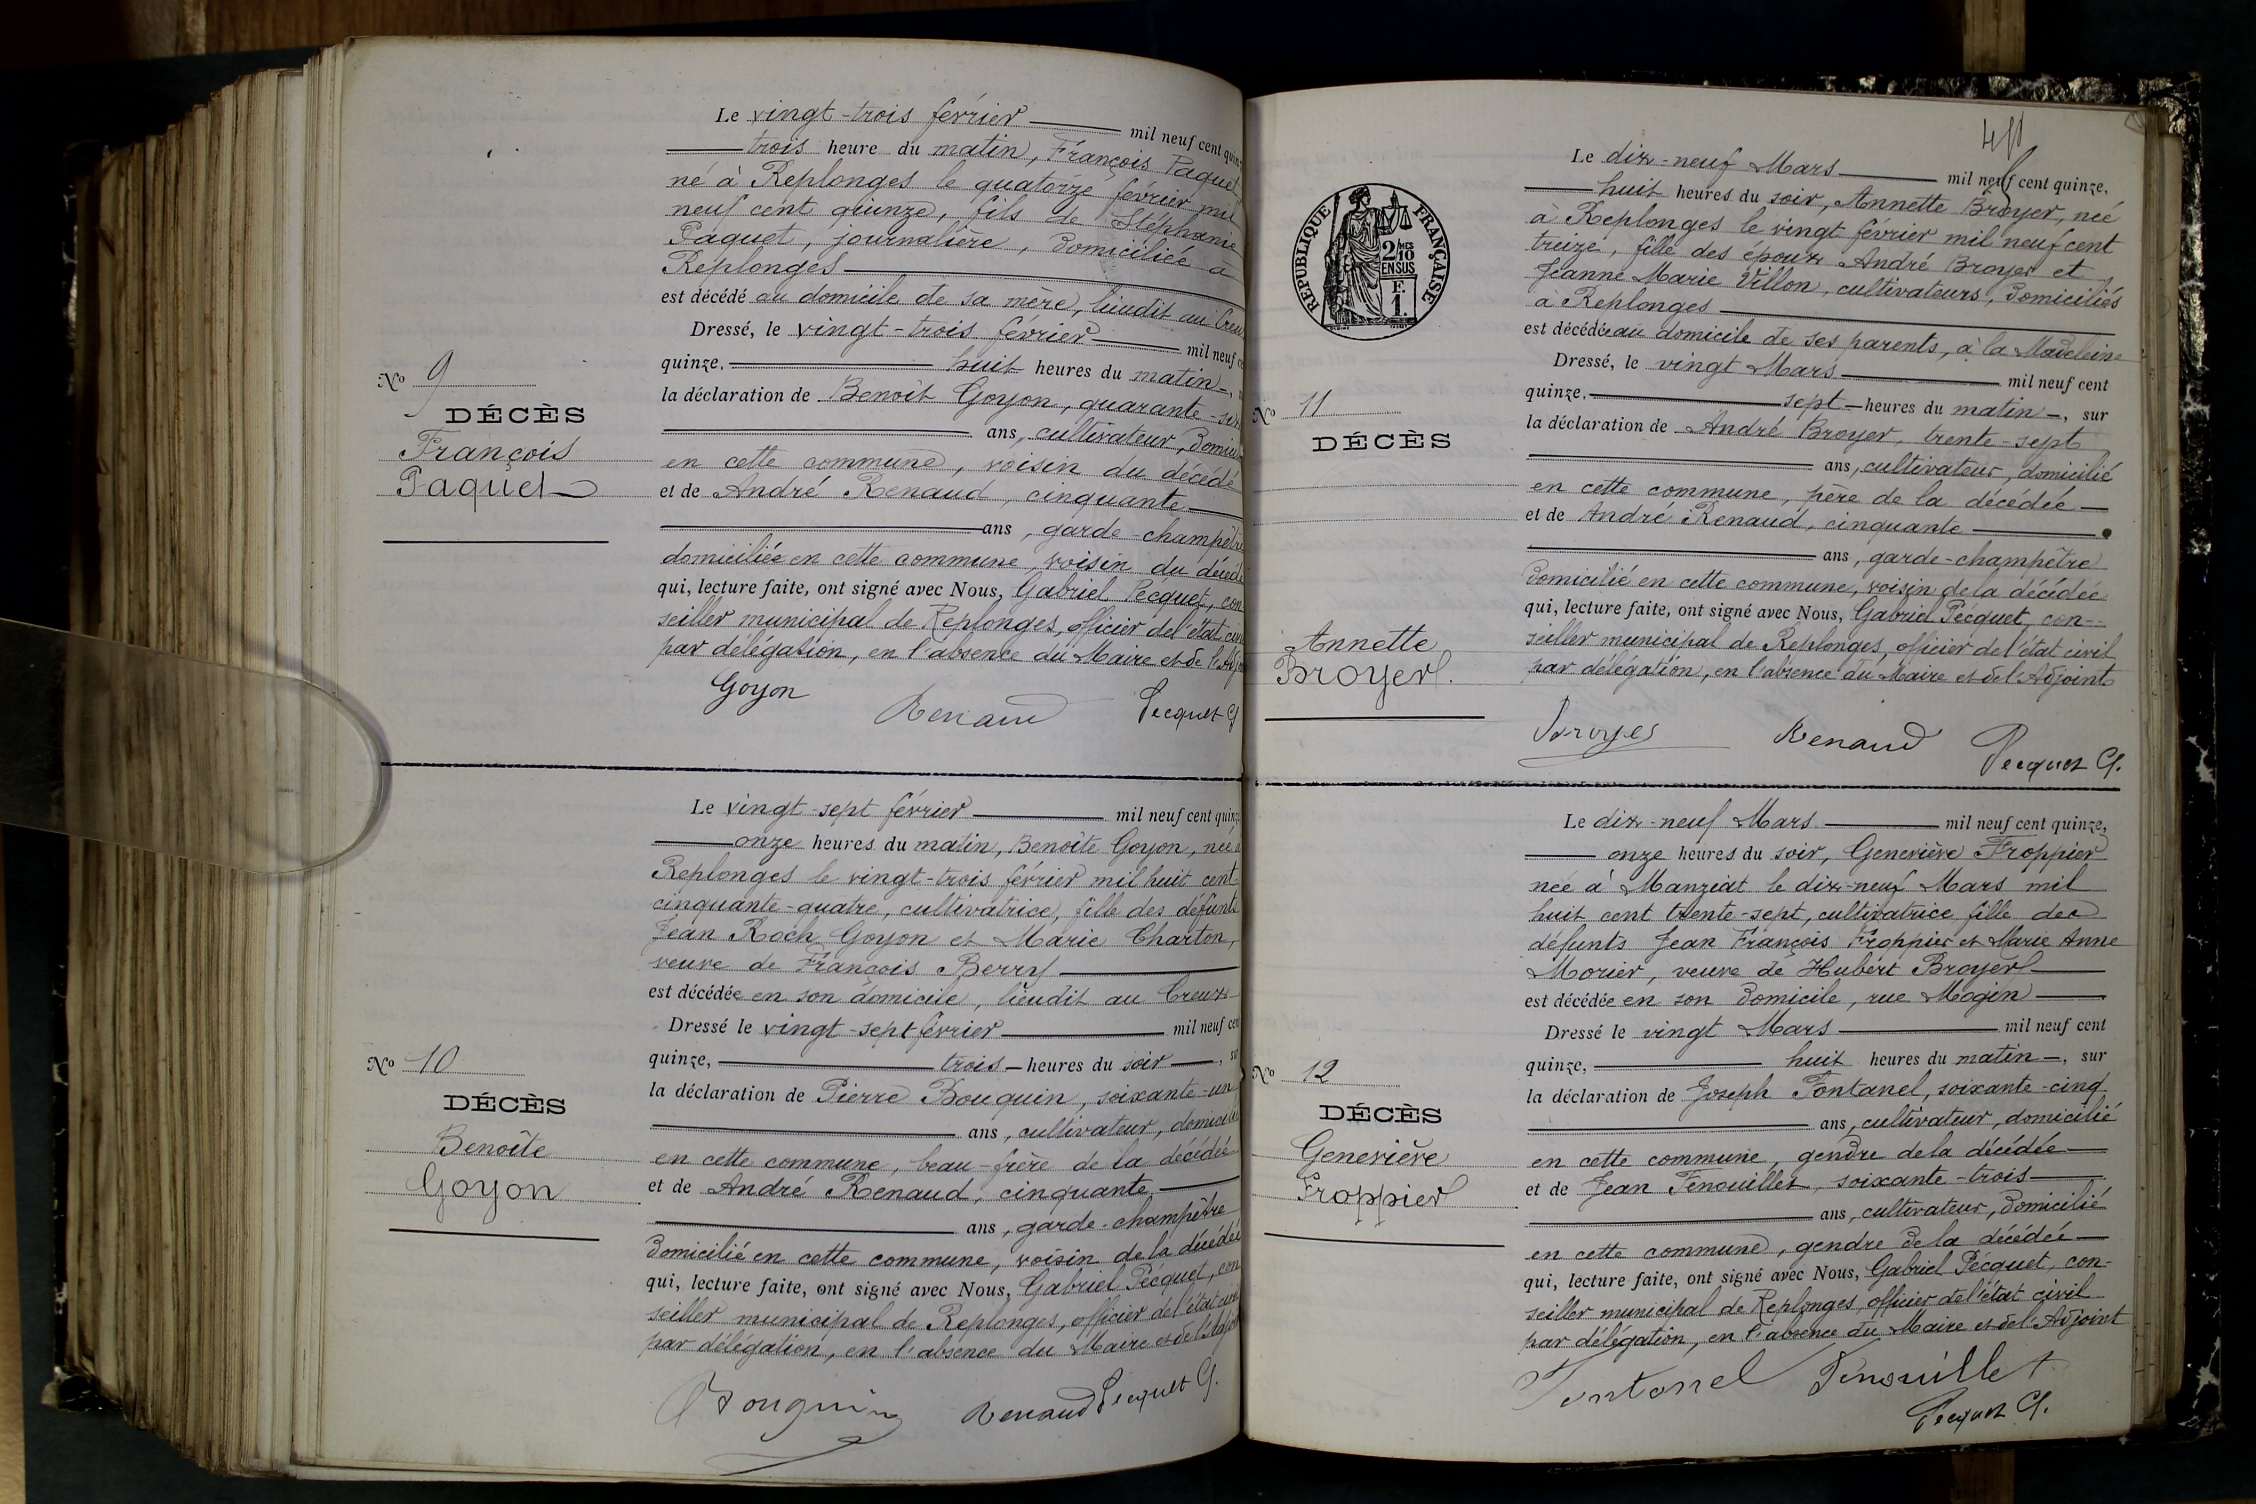 Le vingt-trois février mil neuf cent quin
trois heure du matin, François Paquet
né à Replonges le quatorze février mil
neuf cent quinze, fils de Stéphanie
Paquet, journalière, domiciliée à
Replonges
est décédé au domicile de sa mère, lieudit au Creu
Dressé, le vingt-trois février mil neuf c
quinze, huit heures du matin,
la déclaration de Benoît Goyon, quarante-six
ans, cultivateur, domici
en cette commune, voisin du décédé
et de André Renaud, cinquante
ans, garde-champêtre
domiciliée en cette commune, voisin du décédé
qui, lecture faite, ont signé avec Nous, Gabriel Pécquet, con
seiller municipal de Replonges, officier de l'état civil
par délégation, en l'absence du Maire et de l'Adj
Goyon Renaud Pecquet G
No 9
DÉCÈS
François
Paquet
Le vingt-sept février mil neuf cent quinze
onze heures du matin, Benoîte Goyon, née à
Replonges le vingt-trois février mil huit cent
cinquante-quatre, cultivatrice, fille des défunts
Jean Roch Goyon et Marie Charton,
veuve de François Berry
est décédée en son domicile, lieudit au Creux
Dressé le vingt-sept février mil neuf cen
quinze, trois heures du soir, su
la déclaration de Pierre Bouquin, soixante-un
ans, cultivateur, domicilié
en cette commune, beau-frère de la décédée
et de André Renaud, cinquante
ans, garde-champêtre
domicilié en cette commune, voisin de la décédée
qui, lecture faite, ont signé avec Nous, Gabriel Pécquet, con
seiller municipal de Replonges, officier de l'état civi
par délégation, en l'absence du Maire et de l'Adjoi
Bouquin Renaud Pecquet G.
No 10
DÉCÈS
Benoîte
Goyon
RÉPUBLIQUE FRANÇAISE
2 MES
10
EN SUS
F.
1.
Le dix-neuf Mars mil neuf cent quinze,
huit heures du soir, Annette Broyer, née
à Replonges le vingt février mil neuf cent
treize, fille des époux André Broyer et
Jeanne Marie Villon, cultivateurs, domiciliés
à Replonges
est décédée au domicile de ses parents, à la Madeleine
Dressé, le vingt Mars mil neuf cent
quinze, sept heures du matin, sur
la déclaration de André Broyer, trente-sept
ans, cultivateur, domicilié
en cette commune, père de la décédée
et de André Renaud, cinquante
ans, garde-champêtre
domicilié en cette commune, voisin de la décédée
qui, lecture faite, ont signé avec Nous, Gabriel Pécquet, con-
seiller municipal de Replonges, officier de l'état civil
par délégation, en l'absence du Maire et de l'Adjoint
Broyer Renaud Pecquet G.
No 11
DÉCÈS
Annette
Broyer
Le dix-neuf Mars mil neuf cent quinze,
onze heures du soir, Geneviève Froppier
née à Manziat le dix-neuf Mars mil
huit cent trente-sept, cultivatrice fille des
défunts Jean François Froppier et Marie Anne
Morier, veuve de Hubert Broyer
est décédée en son domicile, rue Mogin
Dressé le vingt Mars mil neuf cent
quinze, huit heures du matin, sur
la déclaration de Joseph Fontanel, soixante-cinq
ans, cultivateur, domicilié
en cette commune, gendre de la décédée
et de Jean Fenouillet, soixante-trois
ans, cultivateur, domicilié
en cette commune, gendre de la décédée
qui, lecture faite, ont signé avec Nous, Gabriel Pécquet, con-
seiller municipal de Replonges, officier de l'état civil
par délégation, en l'absence du Maire et de l'Adjoint
Fontanel Fenouillet
Pecquet G.
No 12
DÉCÈS
Geneviève
Froppier